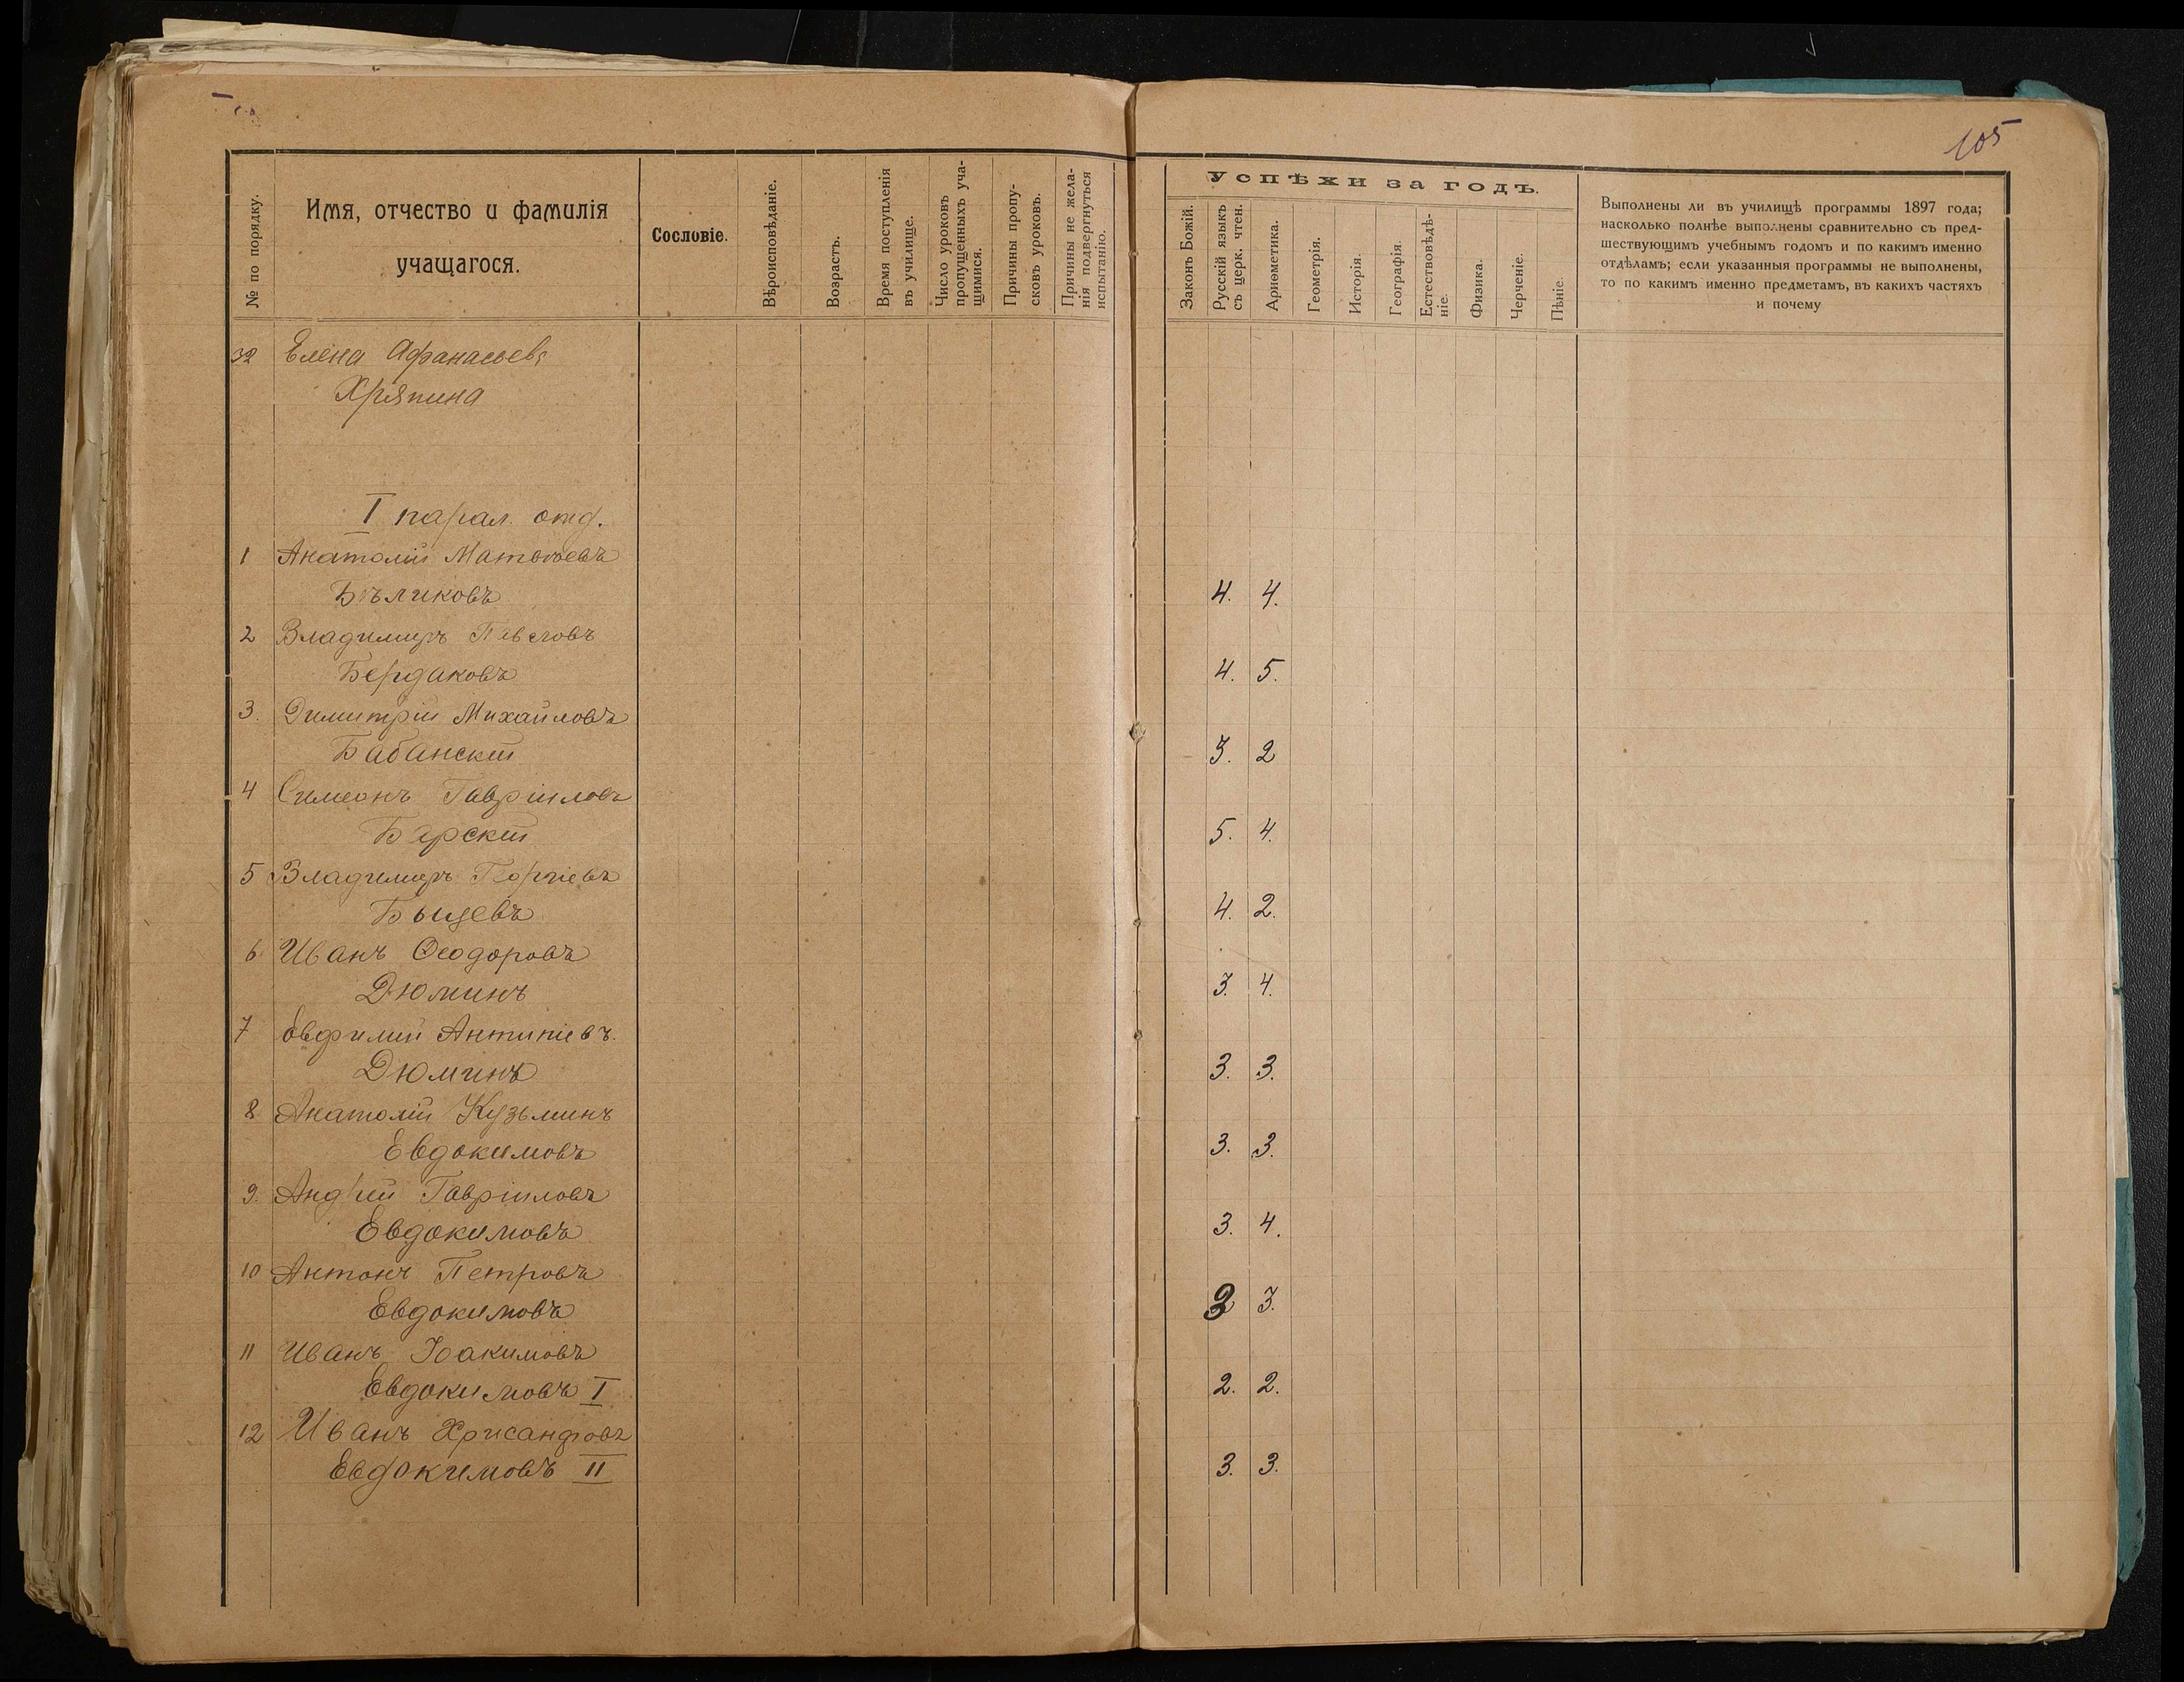 105
№ по порядку.
Имя, отчество и фамилія
учащагося.
Сословіе.
Вѣроисповѣданіе.
Возрастъ.
Время поступленія
въ училище.
Число уроковъ
пропущенныхъ уча-
щимися.
Причины пропу-
сковъ уроковъ.
Причины не жела-
нія подвергнуться
испытанію.
Успѣхи за годъ.
Законъ Божій.
Русскій языкъ
съ церк. чтен.
Ариѳметика.
Геометрія.
Исторія.
Географія.
Естествовѣдѣ-
ніе.
Физика.
Черченіе.
Пѣніе.
Выполнены ли въ училищѣ программы 1897 года;
насколько полнѣе выполнены сравнительно съ пред-
шествующимъ учебнымъ годомъ и по какимъ именно
отдѣламъ; если указанныя программы не выполнены,
то по какимъ именно предметамъ, въ какихъ частяхъ
и почему
32 Елена Афанасьева
Хряпина
I парал. отд.
1 Анатолій Матвѣевъ
Бѣликовъ 4. 4.
2 Владимиръ Павловъ
Бердаковъ 4. 5.
3. Димитрій Михайловъ
Бабанскій 3. 2
4 Симеонъ Гавріиловъ
Борскій 5. 4.
5 Владимиръ Георгіевъ
Быцевъ 4. 2.
6 Иванъ Ѳеодоровъ
Дюминъ 3. 4.
7 Евфимій Антипіевъ.
Дюминъ 3. 3.
8 Анатолій Кузьминъ
Евдокимовъ 3. 3.
9. Андрей Гавріиловъ
Евдокимовъ 3. 4.
10 Антонъ Петровъ
Евдокимовъ 3 3.
11 Иванъ Іоакимовъ
Евдокимовъ I 2. 2.
12 Иванъ Хрисанфовъ
Евдокимовъ II 3. 3.